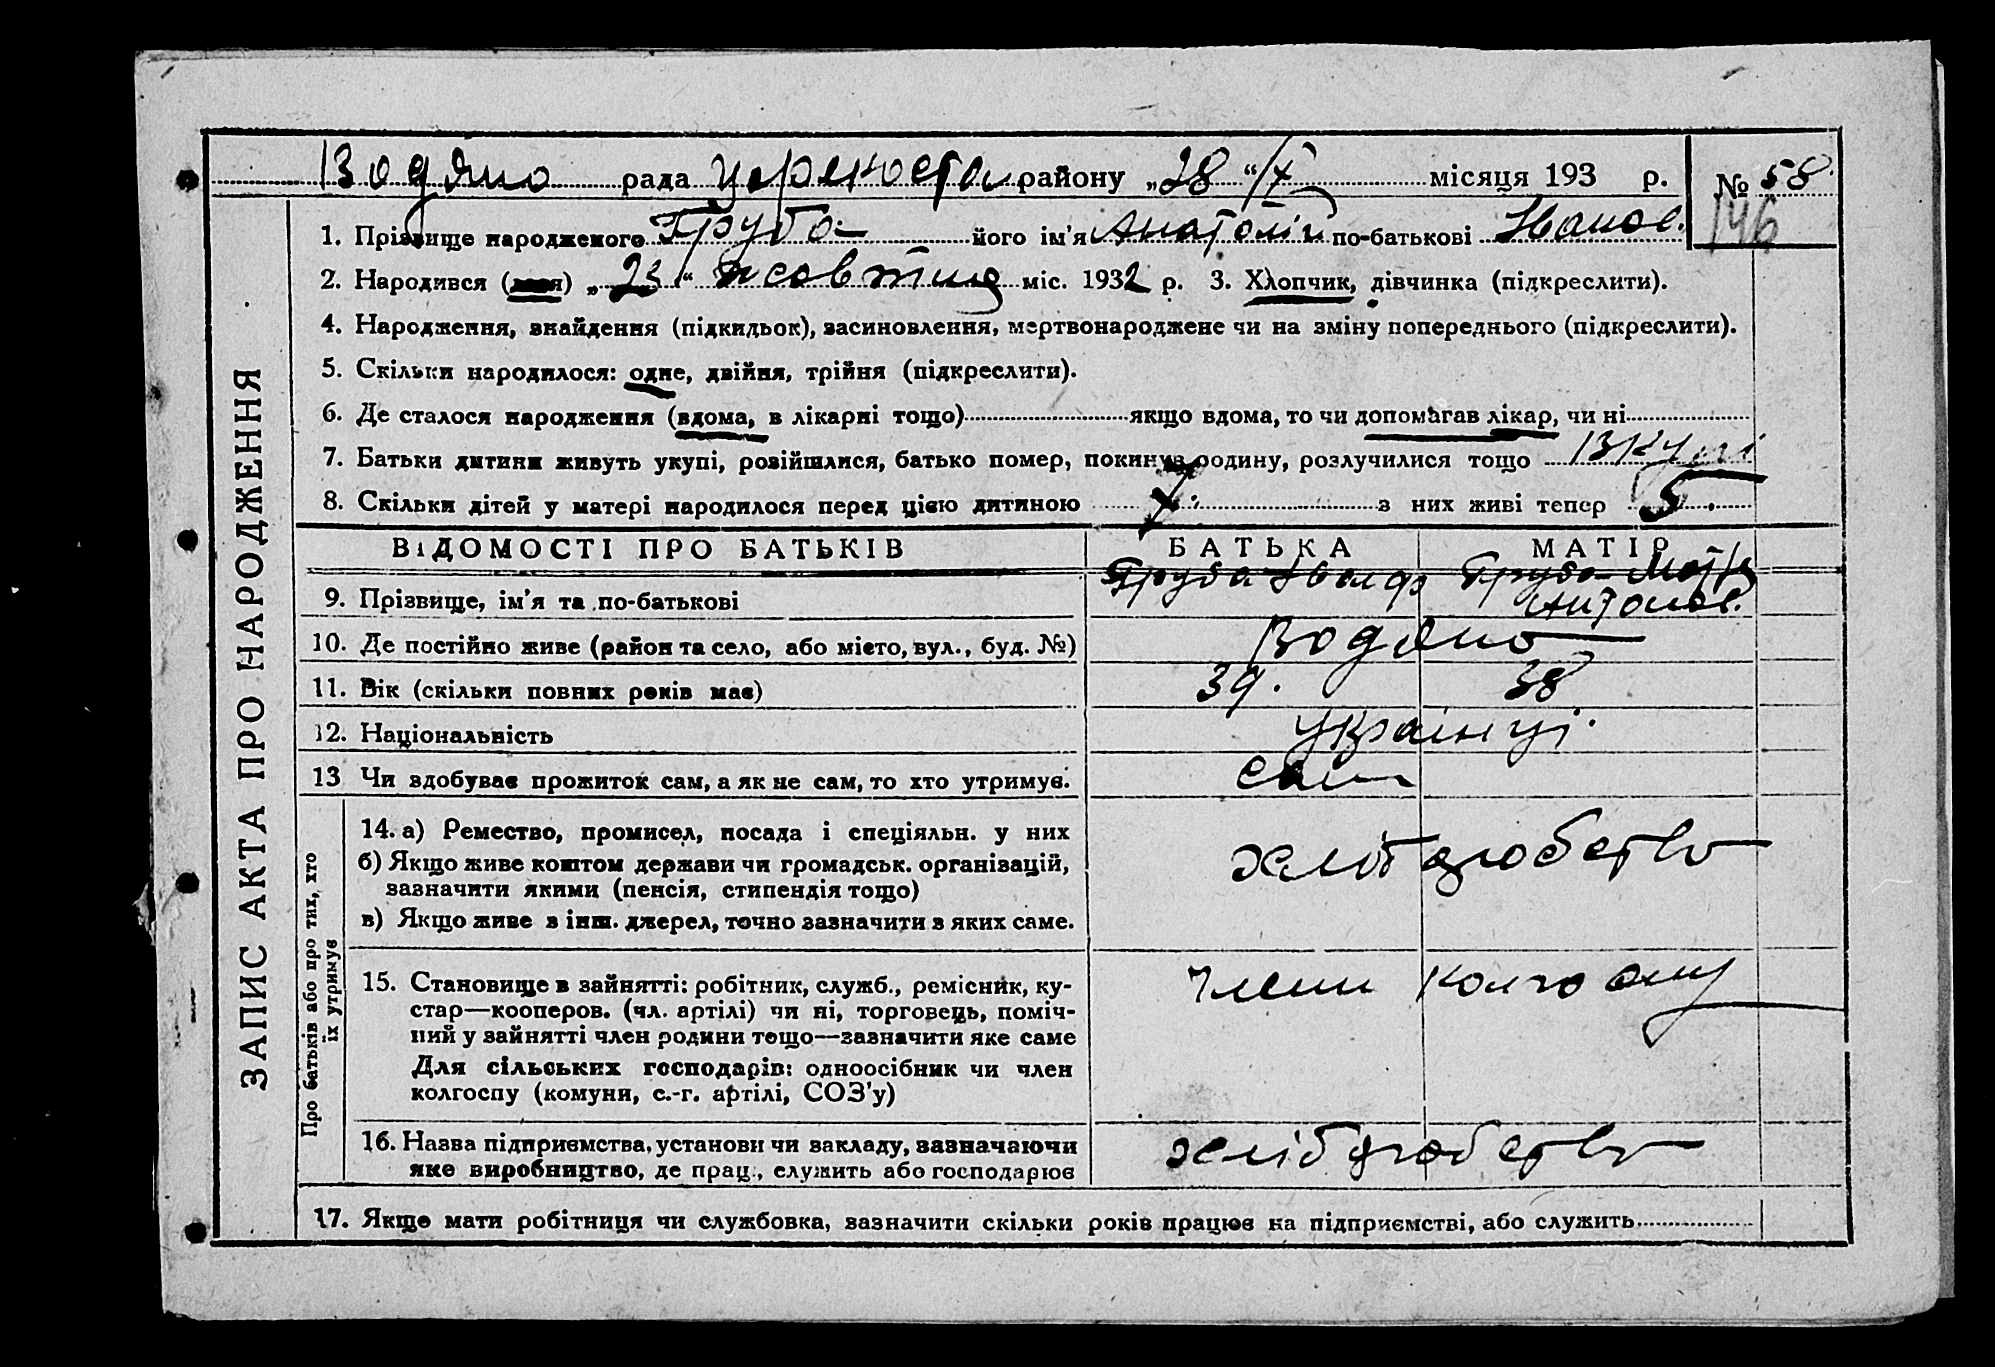 Водяно рада району „28“ /X місяця 193 р. № 58
146
1. Прізвище народженого Груба його ім'я Анатолій по-батькові Іванов.
2. Народився (лася) „23“ жовтня міс. 1932 р. 3. Хлопчик, дівчинка (підкреслити).
4. Народження, знайдення (підкидьок), засиновлення, мертвонароджене чи на зміну попереднього (підкреслити).
5. Скільки народилося: одне, двійня, трійня (підкреслити).
6. Де сталося народження (вдома, в лікарні тощо) якщо вдома, то чи допомагав лікар, чи ні
7. Батьки дитини живуть укупі, розійшлися, батько помер, покинув родину, розлучилися тощо Вкупі
8. Скільки дітей у матері народилося перед цією дитиною 7 з них живі тепер 5.
ЗАПИС АКТА ПРО НАРОДЖЕННЯ
ВІДОМОСТІ ПРО БАТЬКІВ БАТЬКА МАТІР
9. Прізвище, ім'я та по-батькові Груба Іван Груба
Антонов.
10. Де постійно живе (район та село, або місто, вул., буд. №) Водяно
11. Вік (скільки повних років має) 39. 38
12. Національність Українці.
13 Чи здобуває прожиток сам, а як не сам, то хто утримує. сам
Про батьків або про тих, хто
їх утримує
14. а) Ремество, промисел, посада і спеціяльн. у них
б) Якщо живе коштом держави чи громадськ. організацій,
зазначити якими (пенсія, стипендія тощо)
в) Якщо живе з інш. джерел, точно зазначити з яких саме.
хліборобство
15. Становище в зайнятті: робітник, служб., ремісник, ку-
стар—кооперов. (чл. артілі) чи ні, торговець, поміч-
ний у зайнятті член родини тощо—зазначити яке саме
Для сільських господарів: одноосібник чи член
колгоспу (комуни, с.-г. артілі, СОЗ'у)
члени колгоспу
16. Назва підприємства, установи чи закладу, зазначаючи
яке виробництво, де прац., служить або господарює
хліборобство
17. Якщо мати робітниця чи службовка, зазначити скільки років працює на підприємстві, або служить